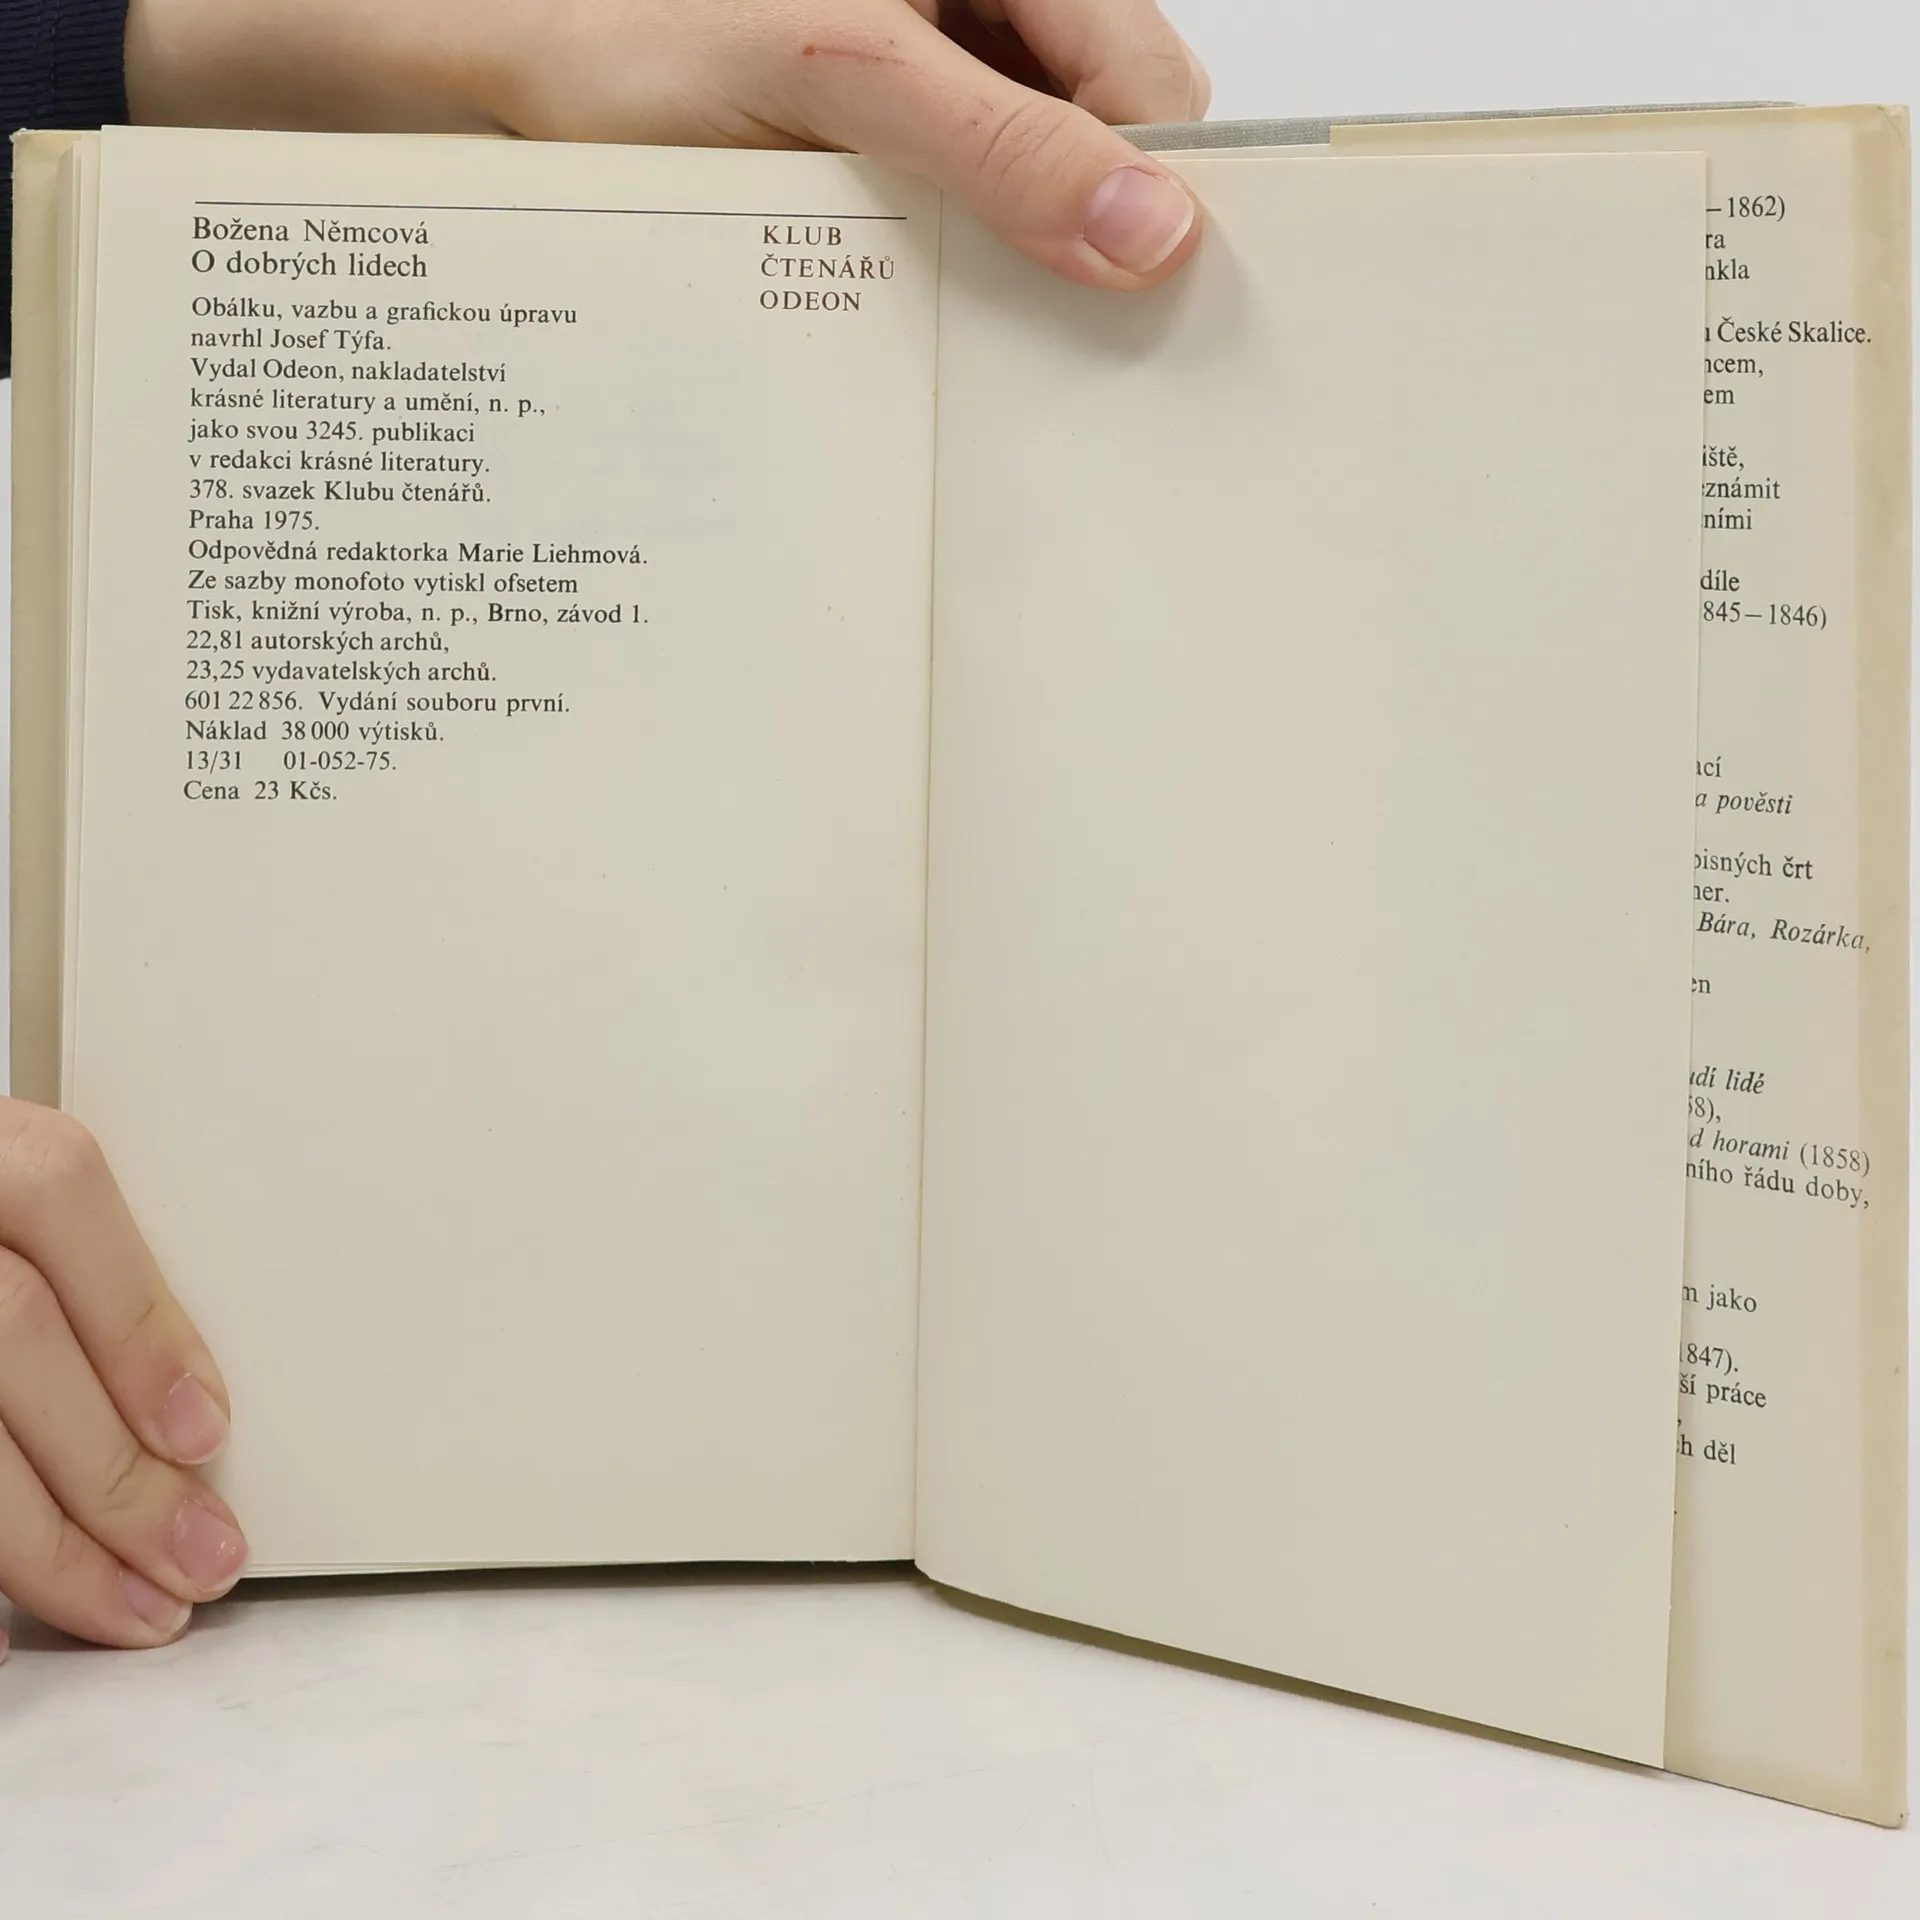 Božena Němcová
O dobrých lidech
KLUB
ČTENÁŘŮ
ODEON
Obálku, vazbu a grafickou úpravu
navrhl Josef Týfa.
Vydal Odeon, nakladatelství
krásné literatury a umění, n. p.,
jako svou 3245. publikaci
v redakci krásné literatury.
378. svazek Klubu čtenářů.
Praha 1975.
Odpovědná redaktorka Marie Liehmová.
Ze sazby monofoto vytiskl ofsetem
Tisk, knižní výroba, n. p., Brno, závod 1.
22,81 autorských archů,
23,25 vydavatelských archů.
601 22 856. Vydání souboru první.
Náklad 38 000 výtisků.
13/31 01-052-75.
Cena 23 Kčs.
– 1862)
České Skalice.
díle
845 – 1846)
a pověsti
črt
Bára, Rozárka,
lidé
horami (1858)
řádu doby,
jako
847).
práce
děl